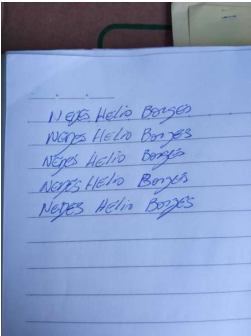 Neyes Helio Borges
Neyes Helio Borges
Neyes Helio Borges
Neyes Helio Borges
Neyes Helio Borges